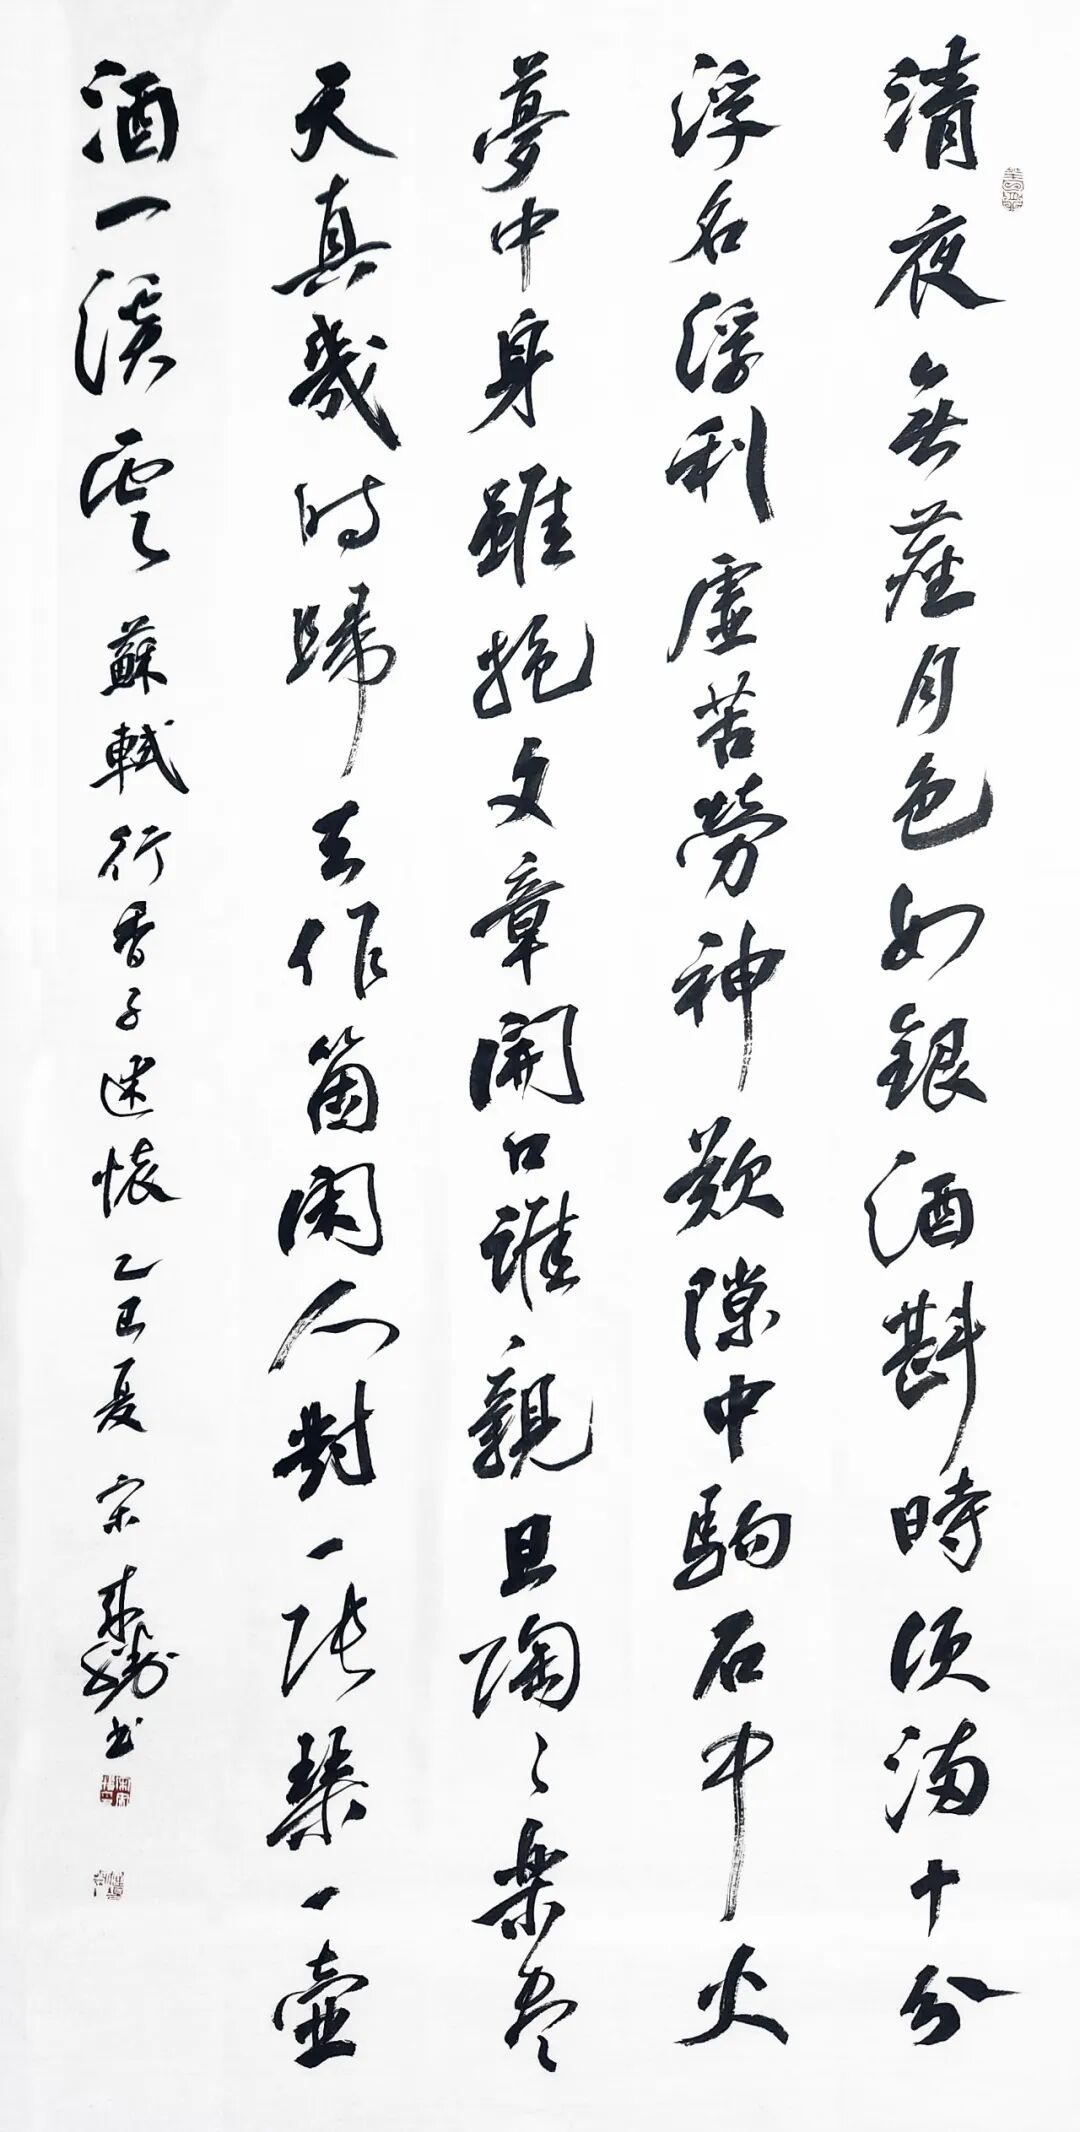 清夜無塵月色如銀酒斟時須滿十分
浮名浮利虛苦勞神歎隙中駒石中火
夢中身雖抱文章開口誰親且陶々樂盡
天真幾時歸去作箇閑人對一張琴一壺
酒一溪雲 蘇軾行香子述懷乙巳夏 宋 書